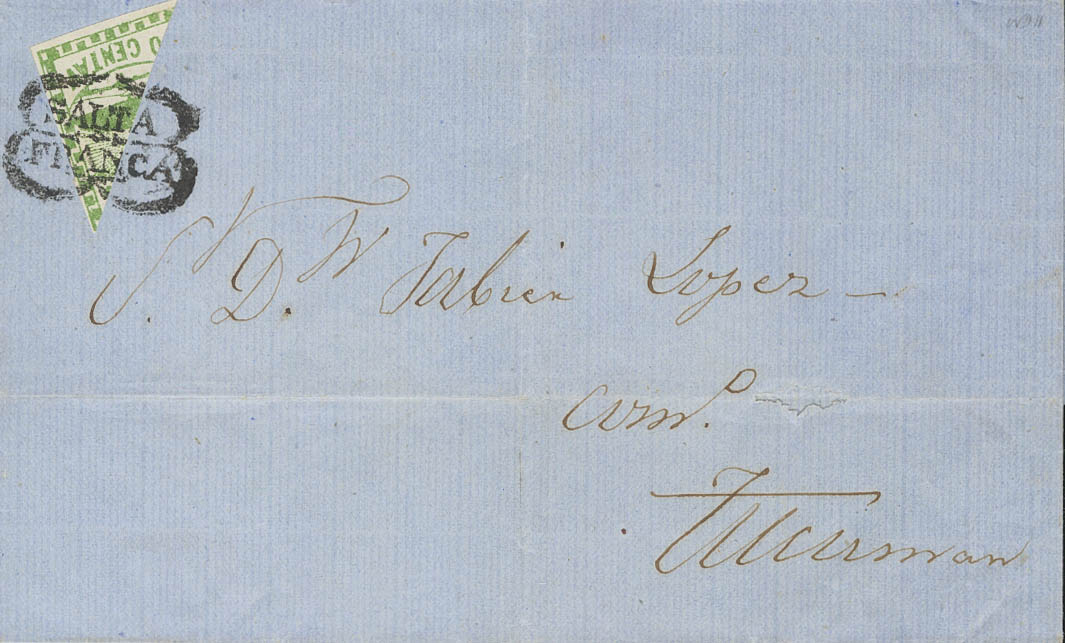 O CENTAV
SALTA
FRANCA
S. D. Fabian Lopez
com.º
Tucuman